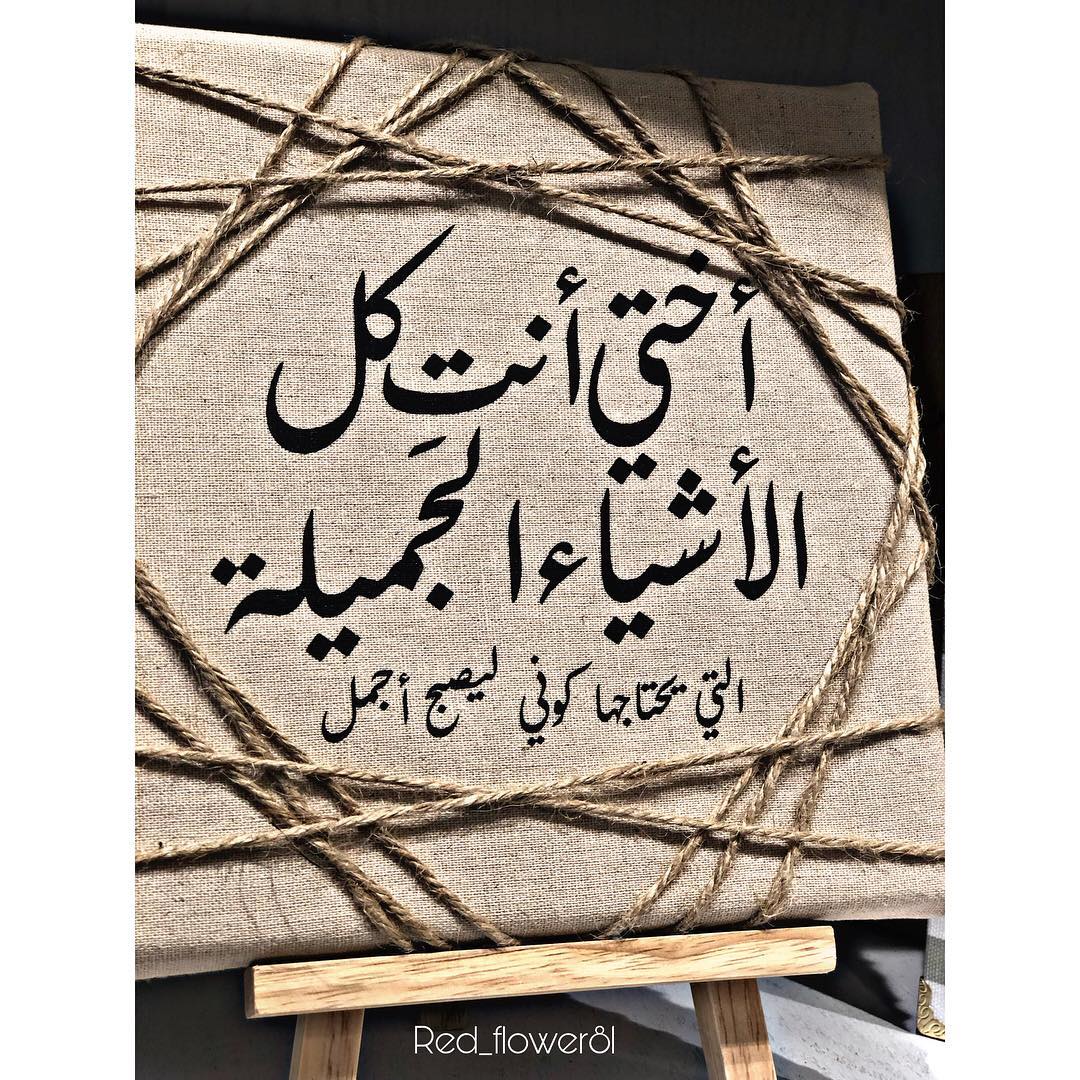 أختي أنت كل
الأشياء الجَميلة
التي يحتاجها كوني ليصبح أجمل
Red_flower81